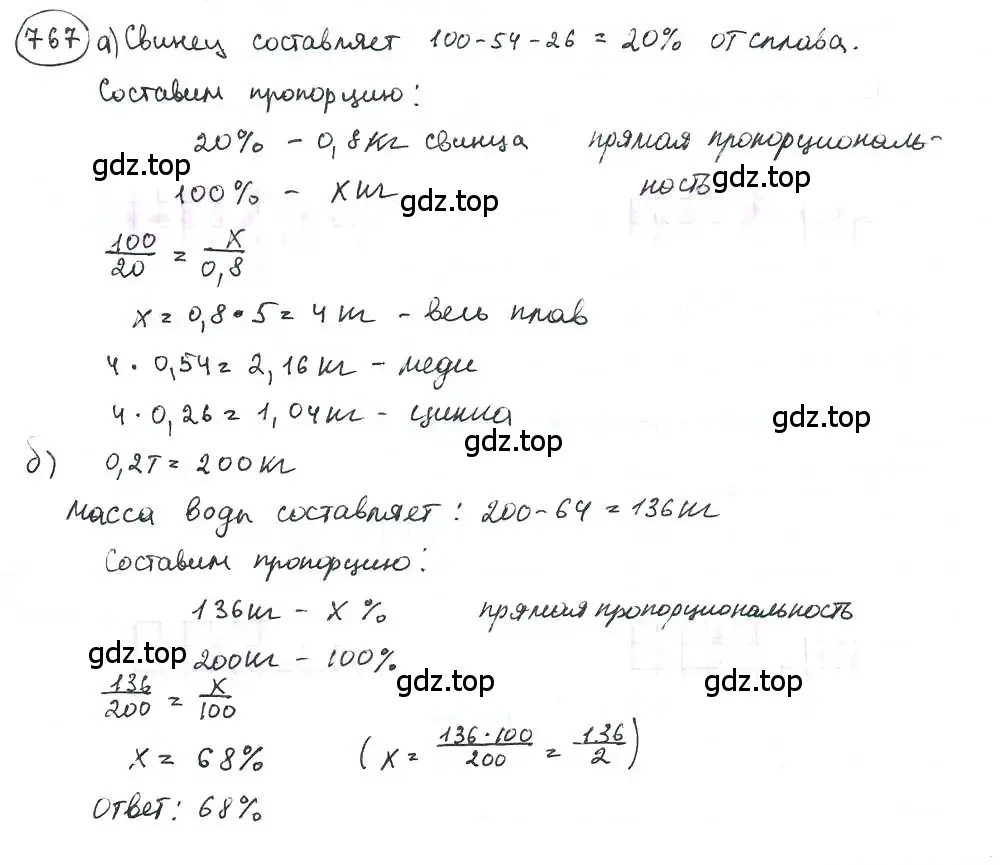 767 а) Свинец составляет 100-54-26 = 20% от сплава.
Составим пропорцию:
20% - 0,8кг свинца прямая пропорциональ-
gdz.top
100% - x кг ность gdz.top
gdz.top
100/20 = x/0,8
x = 0,8•5 = 4 кг - весь плав
4 • 0,54 = 2,16 кг - меди
4 • 0,26 = 1,04 кг - цинка
gdz.top gdz.top
б) 0,2т = 200 кг
Масса воды составляет: 200-64 = 136 кг
Составим пропорцию:
136 кг - x % прямая пропорциональность
gdz.top 200 кг - 100%
gdz.top gdz.top
136/200 = x/100
x = 68% (x = 136•100/200 = 136/2)
Ответ: 68%